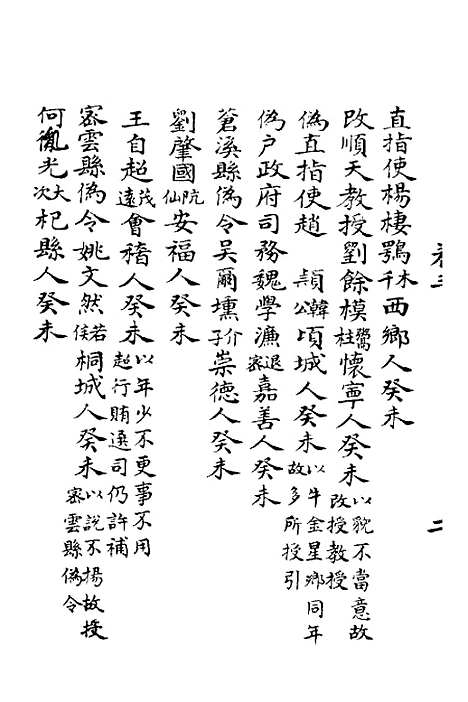 直指使楊棲鶚木千西鄉人癸未
改順天教授劉餘模鷺柱懷寧人癸未以貌不當意故改授教授
偽直指使趙頴韓公項城人癸未以牛金星鄉同年故多所授引
偽户政府司務魏學濂退密嘉善人癸未
蒼溪縣偽令吳爾壎介子崇德人癸未
劉肇國阮仙安福人癸未
王自超茂遠會稽人癸未以年少不更事不用超行賄選司仍許補
密雲縣偽令姚文然若侯桐城人癸未以説不揚故授密雲縣偽令
何胤光大次杞縣人癸未
卷三
二